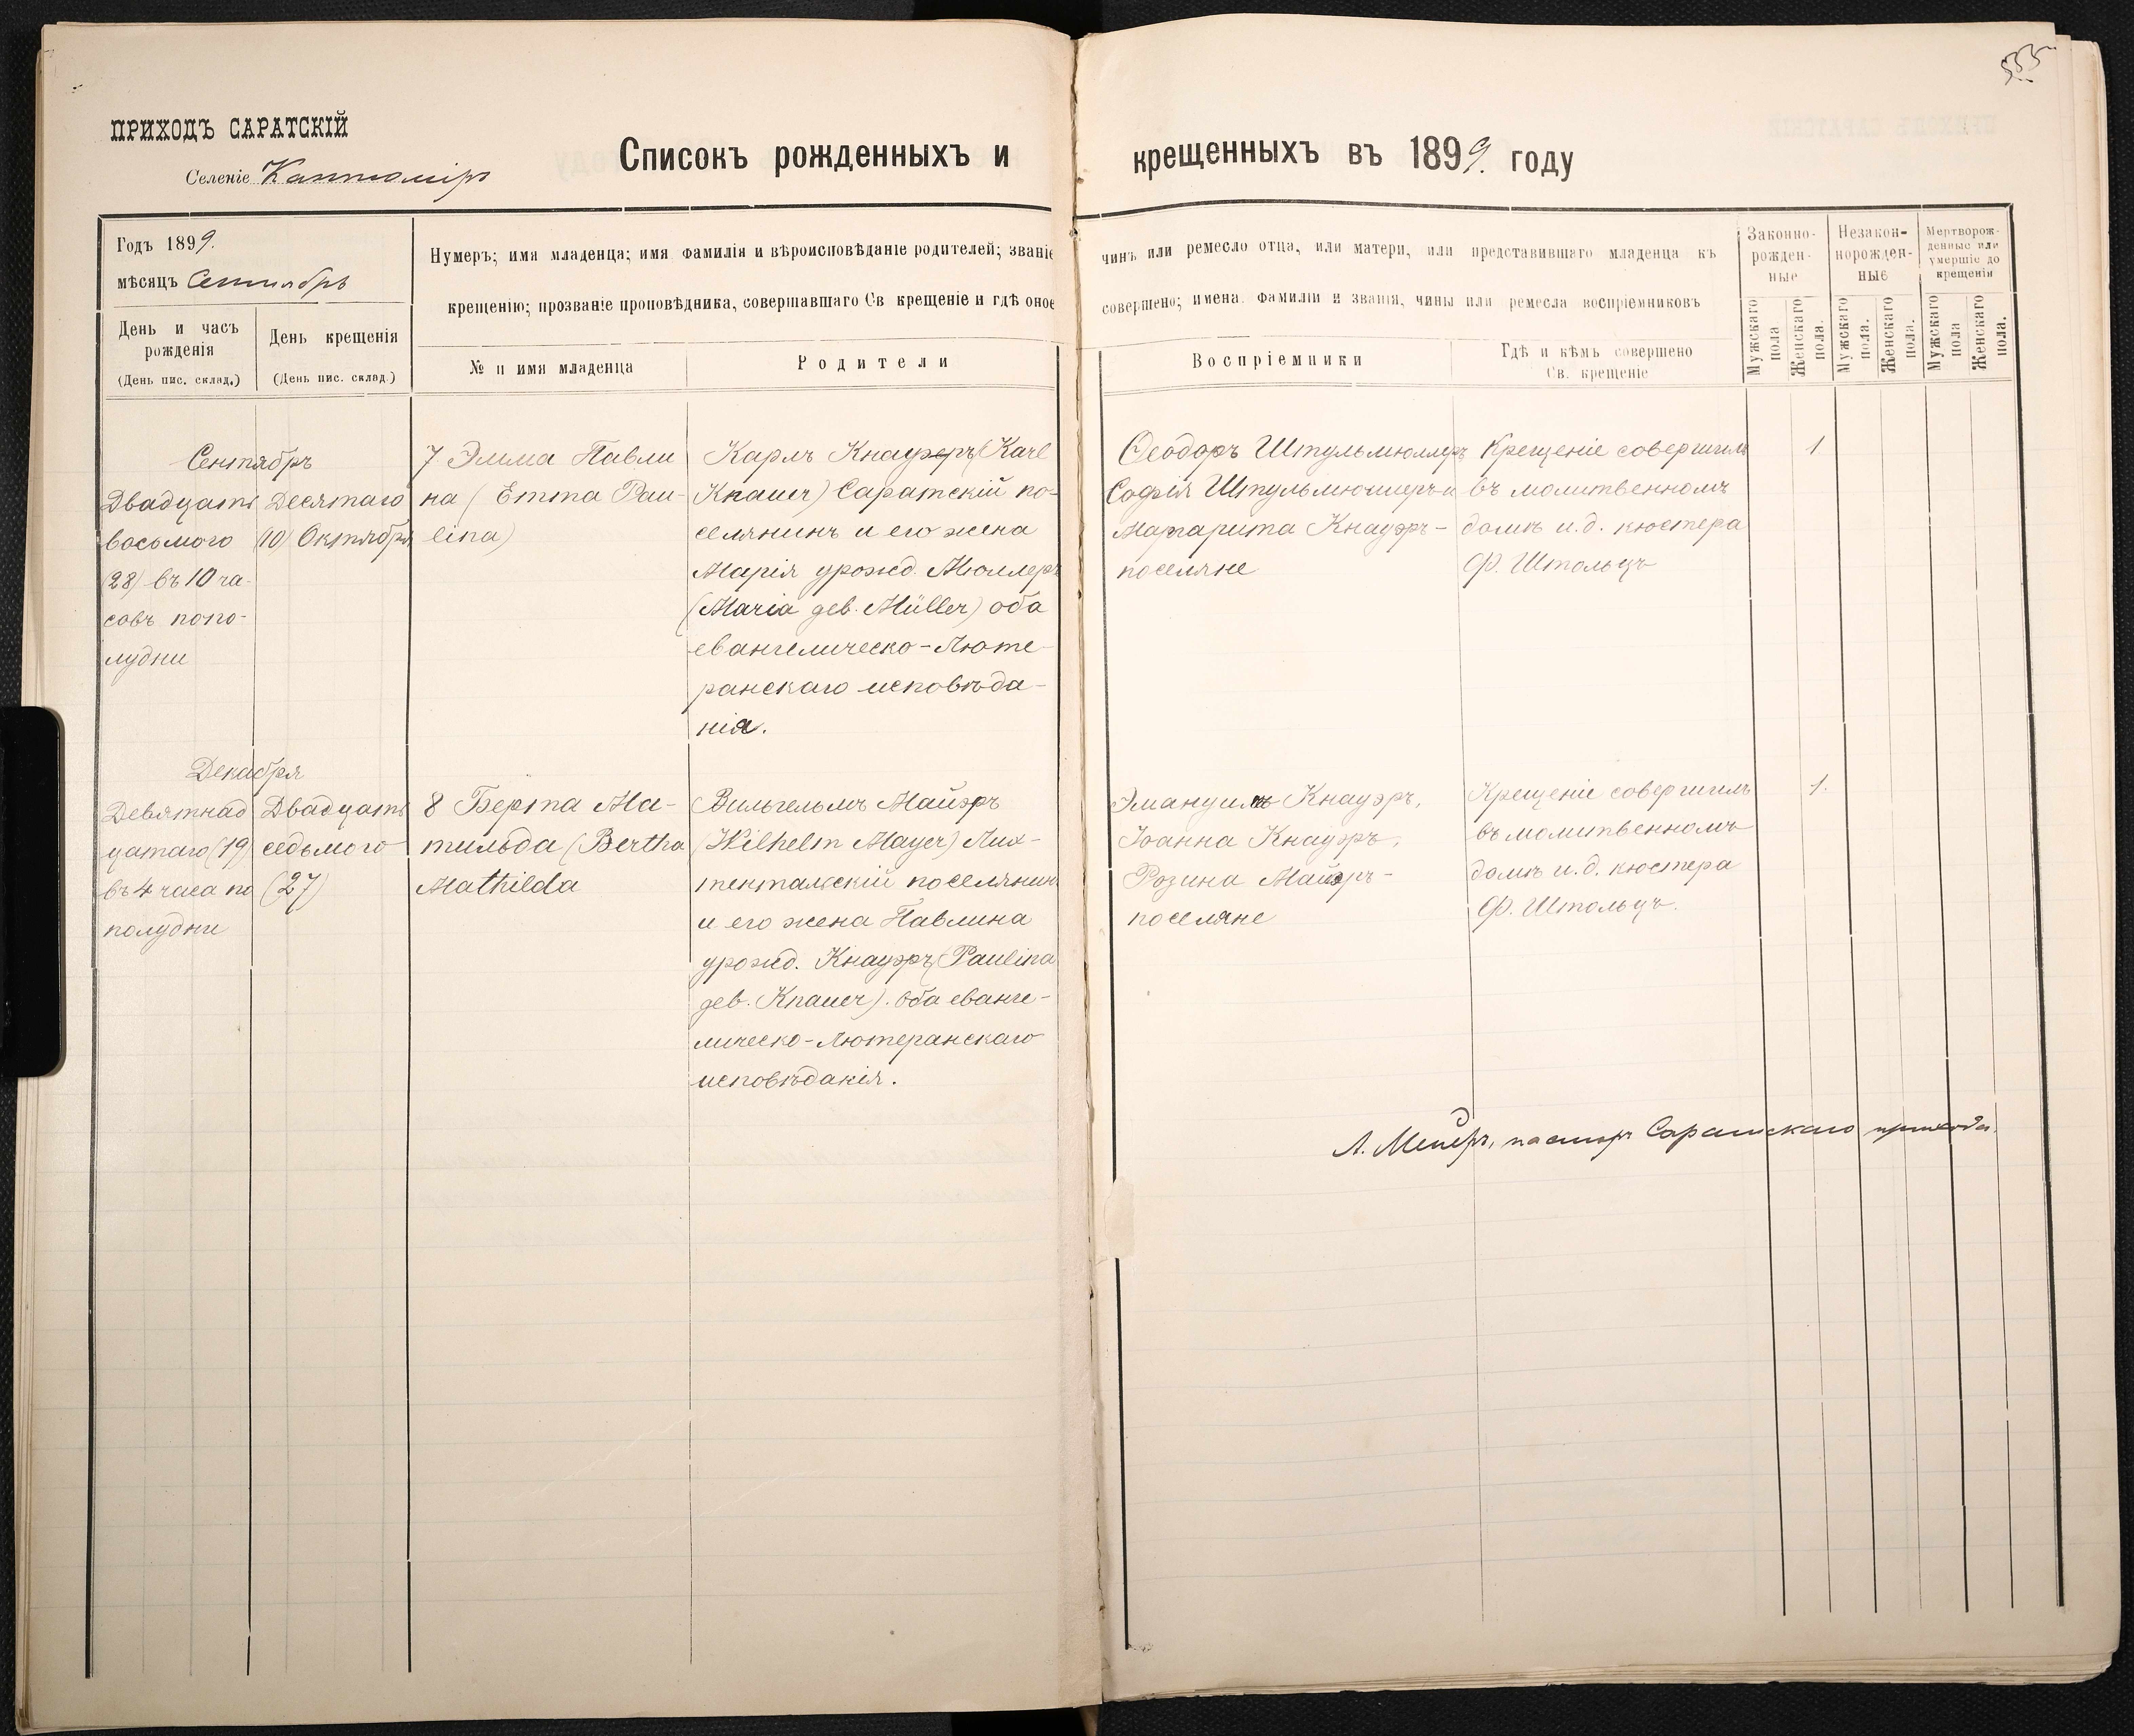 555
ПРИХОДЪ САРАТСКІЙ
Селеніе Кантеміръ
Списокъ рожденныхъ и крещенныхъ въ 1899. году
Годъ 1899.
мѣсяцъ Сентябрь
День и часъ
рожденія
(День пис. склад.)
День крещенія
(День пис. склад.)
Нумеръ; имя младенца; имя фамилія и вѣроисповѣданіе родителей; званіе
чинъ или ремесло отца, или матери, или представившаго младенца къ
крещенію; прозваніе проповѣдника, совершавшаго Св крещеніе и гдѣ оное
совершено; имена фамиліи и званія, чины или ремесла воспріемниковъ
№ и имя младенца
Родители
Воспріемники
Гдѣ и кѣмъ совершено
Св. крещеніе
Законно-
рожден-
ные
Незакон-
норожден-
ные
Мертворож-
денные или
умершіе до
крещенія
Мужскаго
пола
Женскаго
пола.
Мужскаго
пола.
Женскаго
пола.
Мужскаго
пола
Женскаго
пола.
Сентябрь
Двадцать
восьмого
(28) въ 10 ча-
совъ попо-
лудни
Десятаго
(10) Октября
7 Эмма Павли
на (Emma Pau-
lina)
Карлъ Кнауэръ (Karl
Knauer) Саратскій по-
селянинъ и его жена
Марія урожд. Мюллеръ
(Maria дев. Müller) оба
евангелическо-Люте-
ранскаго исповѣда-
нія.
Ѳеодоръ Штульмюллеръ
Софія Штульмюллеръ и
Маргарита Кнауэръ-
поселяне
Крещеніе совершилъ
въ молитвенномъ
домѣ и.д. кюстера
Ф. Штольцъ
1
Декабря
Девятнад
цатаго (19)
въ 4 часа по
полудни
Двадцать
седьмого
(27)
8 Берта Ма-
тильда (Bertha
Mathilda
Вильгельмъ Майэръ
(Wilhelm Mayer) Лих-
тентальскій поселянинъ
и его жена Павлина
урожд. Кнауэръ (Paulina
дев. Knauer). оба еванге-
лическо-Лютеранскаго
исповѣданія.
Эмануилъ Кнауэръ,
Іоанна Кнауэръ,
Розина Майэръ-
поселяне
Крещеніе совершилъ
въ молитвенномъ
домѣ и.д. кюстера
Ф. Штольцъ.
1.
А. Мейеръ, пасторъ Саратскаго прихода.